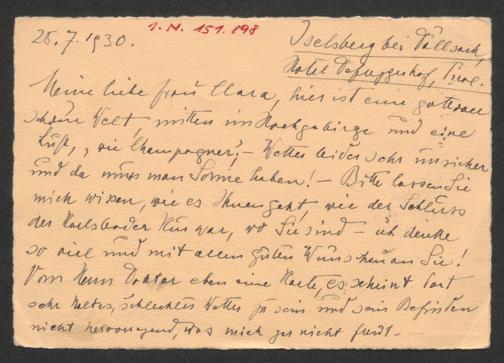 26.7.1930. I.N. 151.898 Iselsberg bei Döllsach,
Hotel Defreggerhof, Tirol.
Meine liebe Frau Clara, hier ist eine gottvoll
schöne Welt, mitten im Hochgebirge und eine
Luft, „wie Champagner", – Wetter leider sehr unsicher
und da muss man Sonne haben! – Bitte lassen Sie
mich wissen, wie es Ihnen geht, wie der Schluss
der Karlsbader Kur war, wo Sie sind – ich denke
so viel und mit allen guten Wünschen an Sie!
Vom Herrn Doktor eben eine Karte, es scheint dort
sehr kaltes, schlechtes Wetter zu sein und sein Befinden
nicht hervorragend, was mich gar nicht freut. –